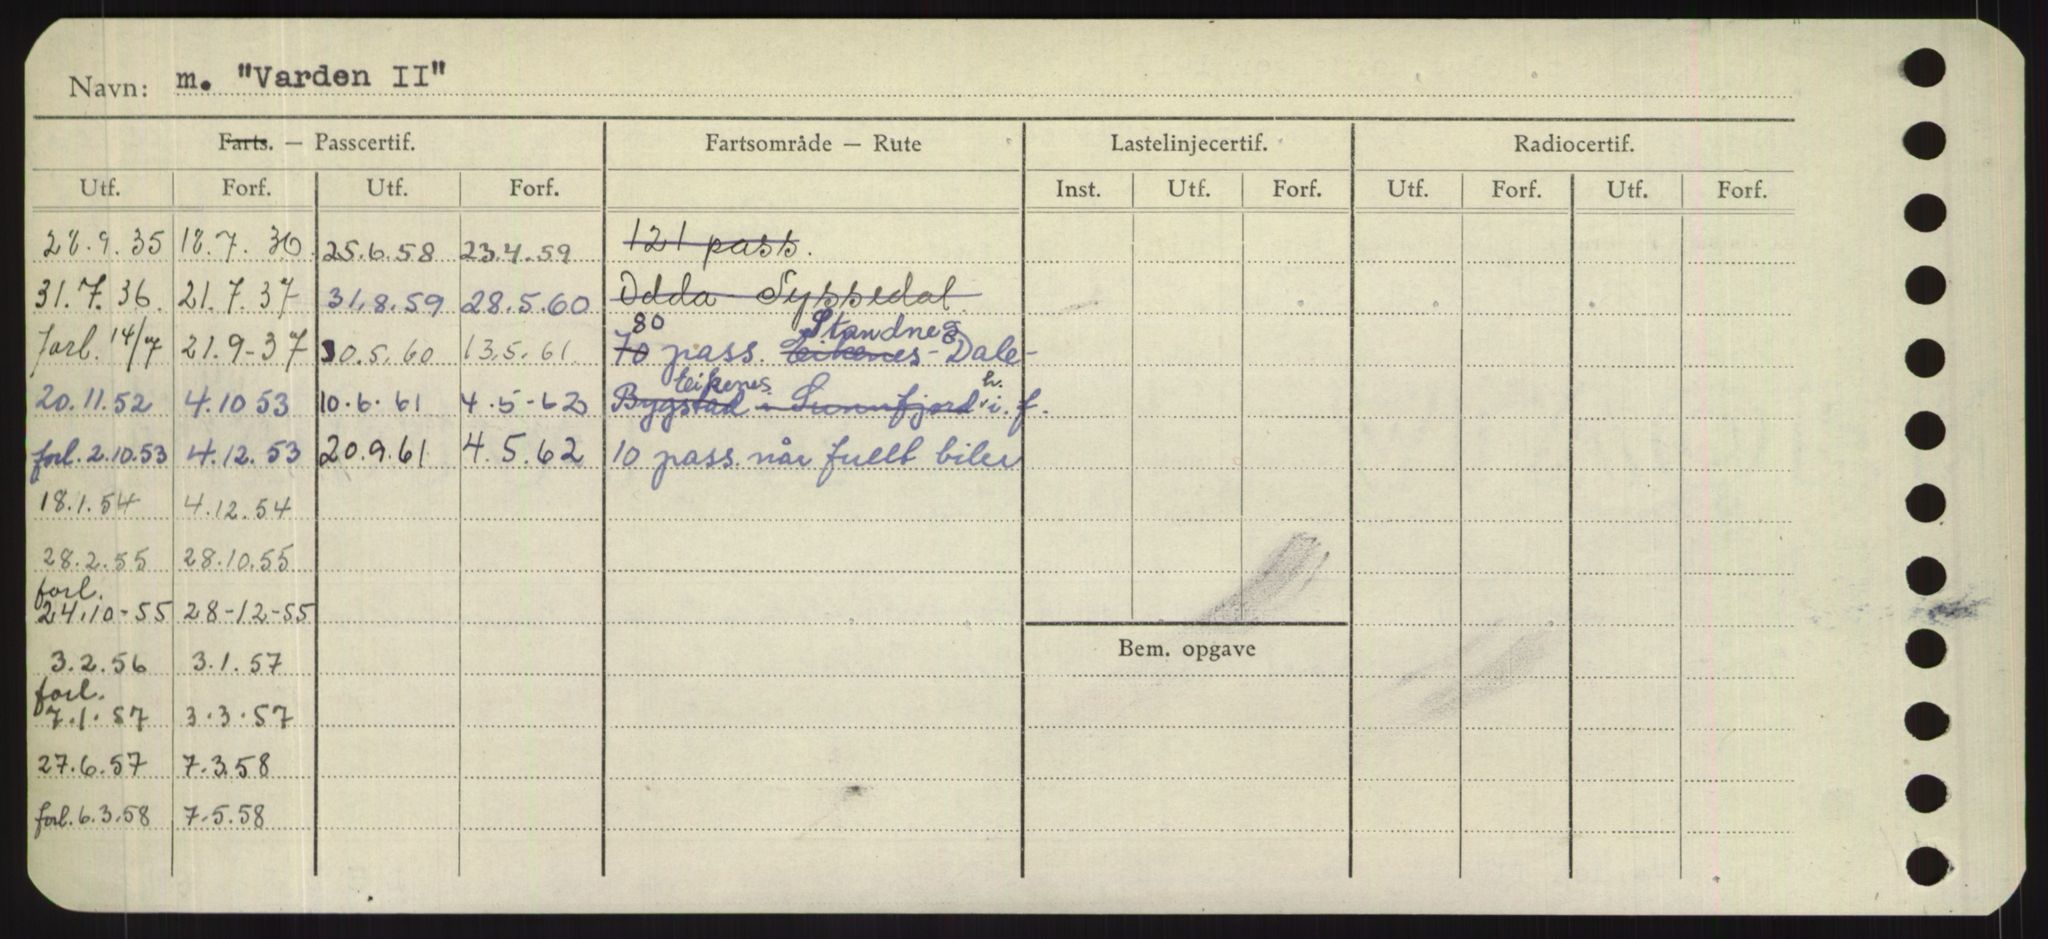 Navn: m. "Varden II"
Farts. — Passcertif. Fartsområde — Rute Lastelinjecertif. Radiocertif.
Utf. Forf. Utf. Forf. Inst. Utf. Forf. Utf. Forf. Utf. Forf.
28.9.35 18.7.36 25.6.58 23.4.59 121 pass.
31.7.36. 21.7.37 31.8.59 28.5.60 Odda Syssedal
80 Standnes
forl. 14/7 21.9-37 30.5.60 13.5.61 70 pass. Eikenes - Dale -
Eikenes h.
20.11.52 4.10 53 10.6.61 4.5-62 Bygstad i Sunnfjord i. f.
forl. 2.10.53 4.12.53 20.9.61 4.5.62 10 pass. når fullt biler
18.1.54 4.12.54
28.2.55 28.10.55
forl.
24.10-55 28-12-55
Bem. opgave
3.2.56 3.1.57
forl.
7.1.57 3.3.57
27.6.57 7.3.58
forl. 6.3.58 7.5.58